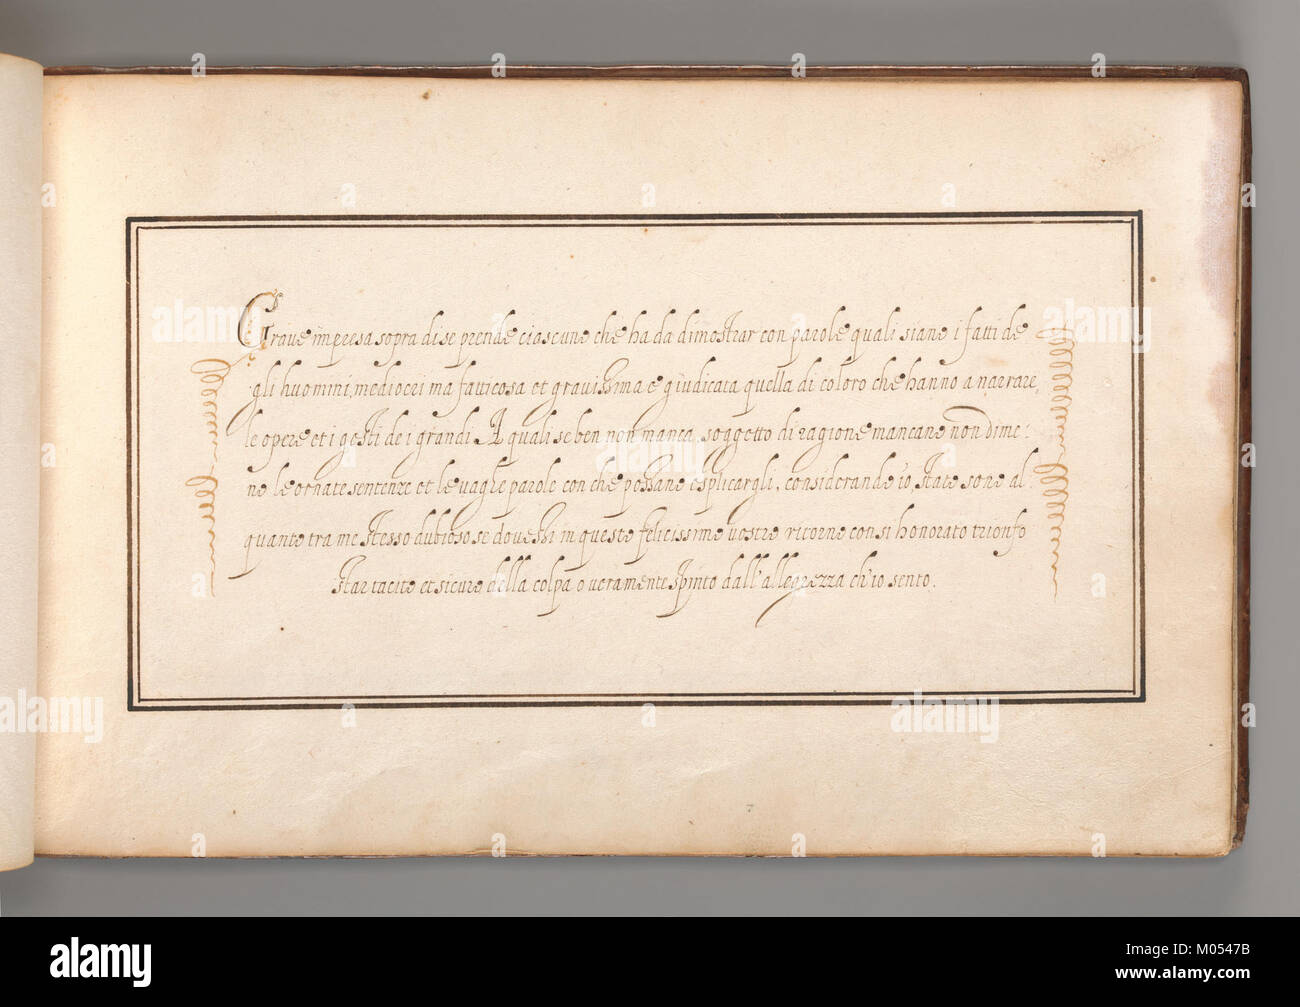 Grave impresa sopra di se prende ciascuno che ha da dimostrar con parole quali siano i fatti de
gli huomini mediocri ma fatticosa et gravissima e giudicata quella di coloro che hanno a narrare,
le opere et i gesti de i grandi A quali se ben non manca soggetto di ragione mancano non dime:
no le ornate sentenze et le vaghe parole con che possano esplicargli, considerando io, stato sono al
quanto tra me stesso dubioso se dovessi in questo felicissimo vostro ritorno con si honorato trionfo
star tacito et sicuro della colpa o veramente spinto dall'allegrezza ch'io sento.
alamy
alamy
Image ID: M0547B
www.alamy.com